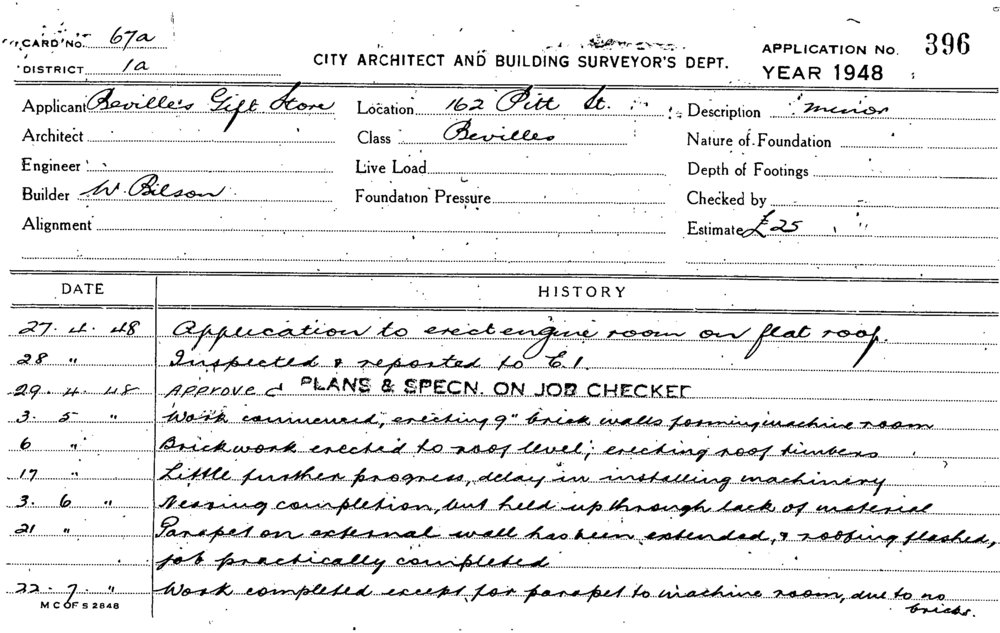 CARD No. 67a
DISTRICT 1a
CITY ARCHITECT AND BUILDING SURVEYOR'S DEPT.
APPLICATION No. 396
YEAR 1948
Applicant Beville's Gift Store
Location 162 Pitt St.
Description minor
Architect
Class Bevilles
Nature of Foundation
Engineer
Live Load
Depth of Footings
Builder W. Bilson
Foundation Pressure
Checked by
Alignment
Estimate £25
DATE HISTORY
27. 4. 48 Application to erect engine room on flat roof.
28 " Inspected & reported to C.I.
29. 4. 48 APPROVED PLANS & SPECN. ON JOB CHECKED
3. 5 " Work commenced, erecting 9" brick walls forming machine room
6 " Brickwork erected to roof level; erecting roof timbers
17 " Little further progress, delay in installing machinery
3. 6 " Nearing completion, but held up through lack of material
21 " Parapet on external wall has been extended, & roofing flashed,
job practically completed
22. 7. " Work completed except for parapet to machine room, due to no
bricks.
M C OF S 2848